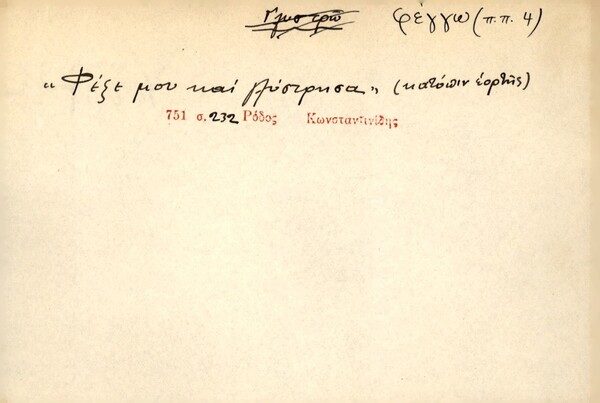 γλυστρῶ φέγγω (π.π. 4)
« Φέξε μου καί γλύστρησα » (κατόπιν ἑορτῆς)
751 σ. 232 Ρόδος Κωνσταντινίδης